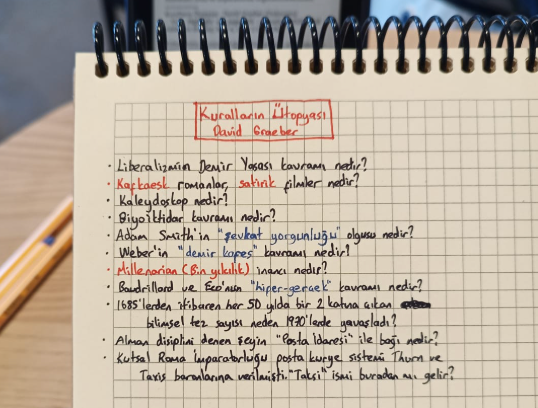 Kuralların Ütopyası
David Graeber
· Liberalizmin Demir Yasası kavramı nedir?
· Kafkaesk romanlar, satirik filmler nedir?
· Kaleydoskop nedir?
· Biyoiktidar kavramı nedir?
· Adam Smith'in "şevkat yorgunluğu" olgusu nedir?
· Weber'in "demir kafes" kavramı nedir?
· Millenarian (Bin yılcılık) inancı nedir?
· Baudrillard ve Eco'nun "hiper-gerçek" kavramı nedir?
· 1685'lerden itibaren her 50 yılda bir 2 katına çıkan
bilimsel tez sayısı neden 1970'lerde yavaşladı?
· Alman disiplini denen şeyin "Posta İdaresi" ile bağı nedir?
· Kutsal Roma İmparatorluğu posta kurye sistemi Thurn ve
Taxis baronlarına verilmişti. "Taksi" ismi buradan mı gelir?